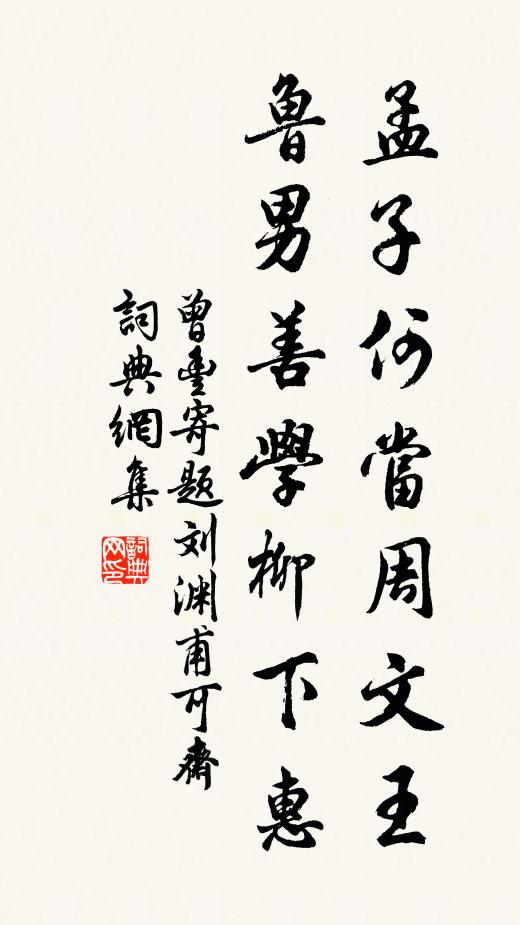 孟子何當周文王
魯男善學柳下惠
曾豊寄題刘渊甫可齋
詞典網集
詞典網印